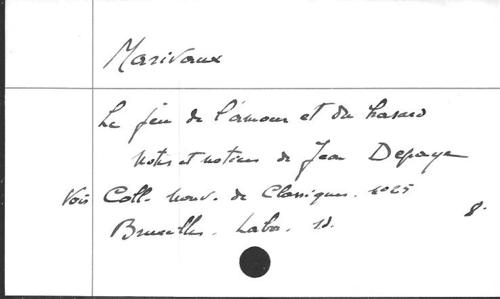 Marivaux
Le jeu de l'amour et du hasard
Notes et notices de Jean Depaye
Voir Coll. Nouv. de Classiques. 1025
Bruxelles. Labor. 8.